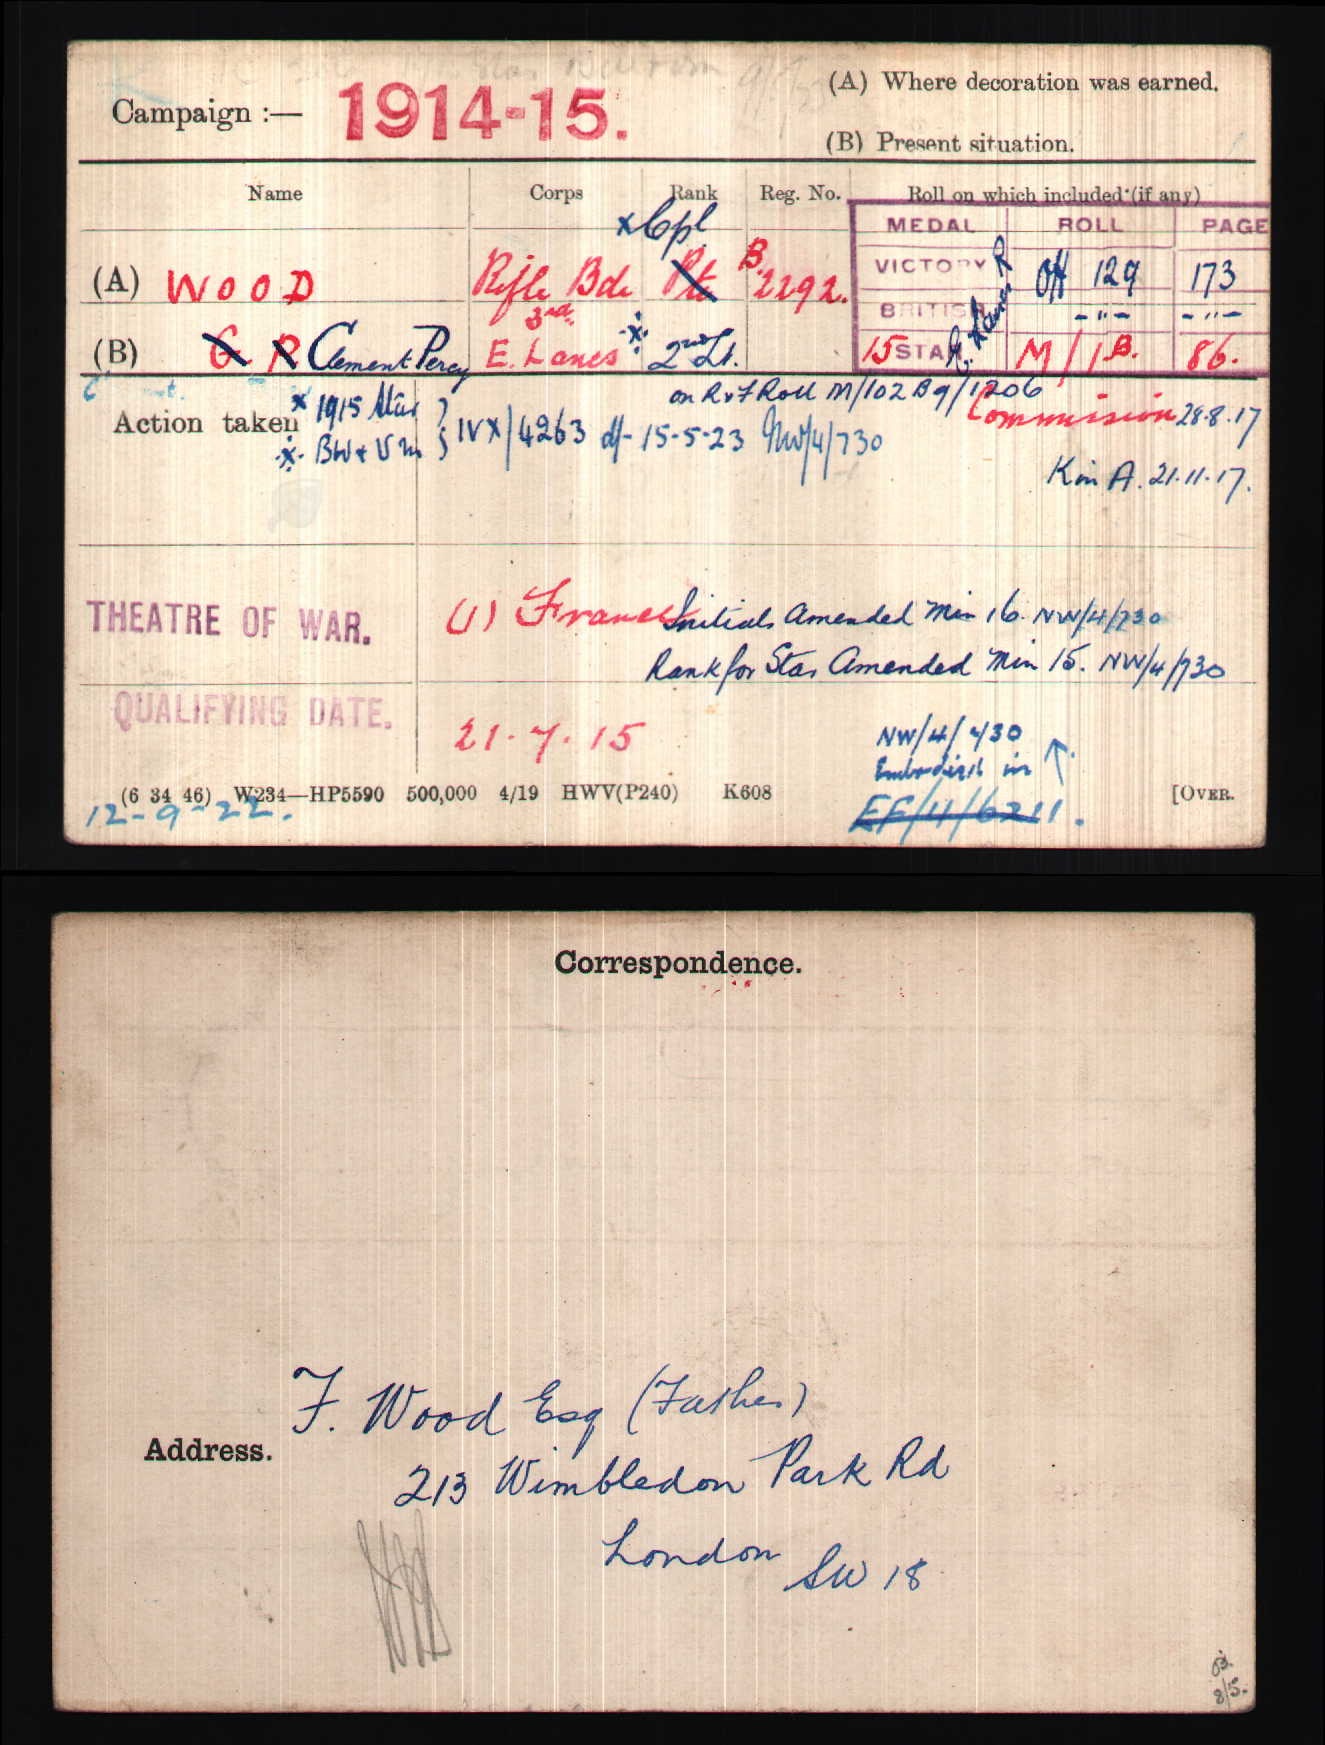 Campaign :— 1914-15.
(A) Where decoration was earned.
(B) Present situation.
Name Corps Rank Reg. No. Roll on which included (if any)
x Cpl
MEDAL ROLL PAGE
(A) WOOD Rifle Bde Pte B. 2292. VICTORY Off 129 173
3rd BRITISH - " - - " -
E. Lancs R
(B) G R Clement Percy E. Lancs 2nd Lt. 15 STAR M/1B. 86.
on R & F Roll M/102 B9/1206
Action taken x 1915 Star } IVX/4263 d/- 15-5-23 NW/4/730
Commission 28.8.17
x BW & VM
K in A. 21.11.17.
THEATRE OF WAR. (1) France
Initials Amended Min 16. NW/4/730
Rank for Star Amended Min 15. NW/4/730
QUALIFYING DATE. 21.7.15
NW/4/730
Embodied in
(6 34 46) W234—HP5590 500,000 4/19 HWV(P240) K608 [OVER.
12-9-22. EF/4/6211.
Correspondence.
F. Wood Esq (Father)
Address.
213 Wimbledon Park Rd
London
SW 18
8/5.